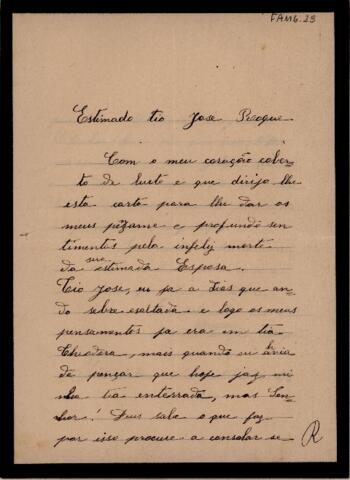 FAMG. 23
Estimado tio Jose Roque
Com o meu coração cober
to de lucto e que dirijo lhe
esta carta para lhe dar os
meus pezame e profundo sen
timentos pela infeliz morte
da sua estimada Esposa.
Tio Jose, eu ja a dias que an-
do sobre esaltada e logo os meus
pensamentos ja era em tia
Theodora, mais quando eu avia
de pençar que hoje jaz mi
nha tia enterrada, mas Sen
hor! Deus sabe o que faz
por isso procure a consolar se
R